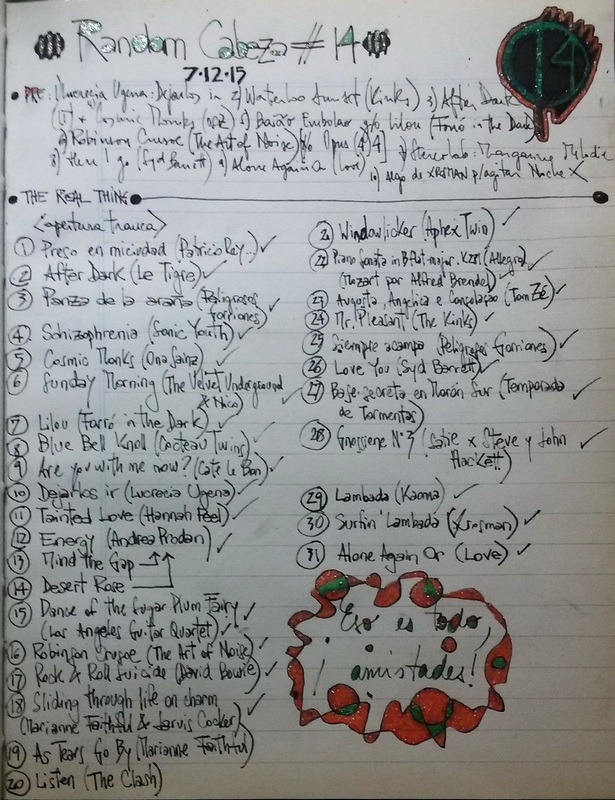 Random Cabeza # 14
7.12.15
14
• PRE: Lucrecia Ugena: Dejarlos ir 2) Waterloo Sunset (Kinks) 3) After Dark
(LT) 4 Cosmic Monks (OSZ) 5) Baixo Embolar 6) Lilou (Farró in the Dark)
Robinson Crusoe (The Art of Noise) Opus 4 Stereolab:
8) Here I go (Syd Barrett) 9) Alone Again Or (Love)
10) Algo de XRSMAN p/agitar Noche X
• THE REAL THING
<apertura trauca>
1 Preso en mi ciudad (Patricio Rey..) ✓
2 After Dark (Le Tigre) ✓
3 Panza de la araña (Peligrosos
Gorriones) ✓
4 Schizophrenia (Sonic Youth) ✓
5 Cosmic Monks (Ona Sainz) ✓
6 Sunday Morning (The Velvet Underground
& Nico) ✓
7 Lilou (Farró in the Dark) ✓
8 Blue Bell Knoll (Cocteau Twins) ✓
9 Are you with me now? (Cate le Bon) ✓
10 Dejarlos ir (Lucrecia Ugena) ✓
11 Tainted Love (Hannah Peel) ✓
12 Energy (Andrea Prodan) ✓
13 Mind the Gap
14 Desert Rose
15 Dance of the Sugar Plum Fairy
(Los Angeles Guitar Quartet) ✓
16 Robinson Crusoe (The Art of Noise) ✓
17 Rock & Roll Suicide (David Bowie) ✓
18 Sliding through life on charm
(Marianne Faithful & Jarvis Cocker) ✓
19 As Tears Go By (Marianne Faithful)
20 Listen (The Clash)
21 Windowlicker (Aphex Twin) ✓
22 Piano Sonata in B flat major, K281 (Allegro)
(Mozart por Alfred Brendel) ✓
23 Augusta, Angelica e Consolação (Tom Zé) ✓
24 Mr. Pleasant (The Kinks) ✓
25 Siempre acampa (Peligrosos Gorriones) ✓
26 Love You (Syd Barrett) ✓
27 Base secreta en Morán Sur (Temporada
de Tormentas) ✓
28 Gnossiene N°3 (Satie x Steve y John
Hackett) ✓
29 Lambada (Kaoma) ✓
30 Surfin' Lambada (Xrosman) ✓
31 Alone Again Or (Love) ✓
Eso es todo,
¡amistades!